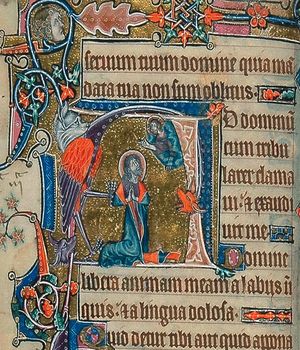 seruum tuum domine quia man
data tua non sum oblitus.
AD dominū
cum tribu
larer clama
ui: & exaudi
uit me. Domine
libera animam meam a labijs in
iquis: & a lingua dolosa.
Quid detur tibi aut quid appona